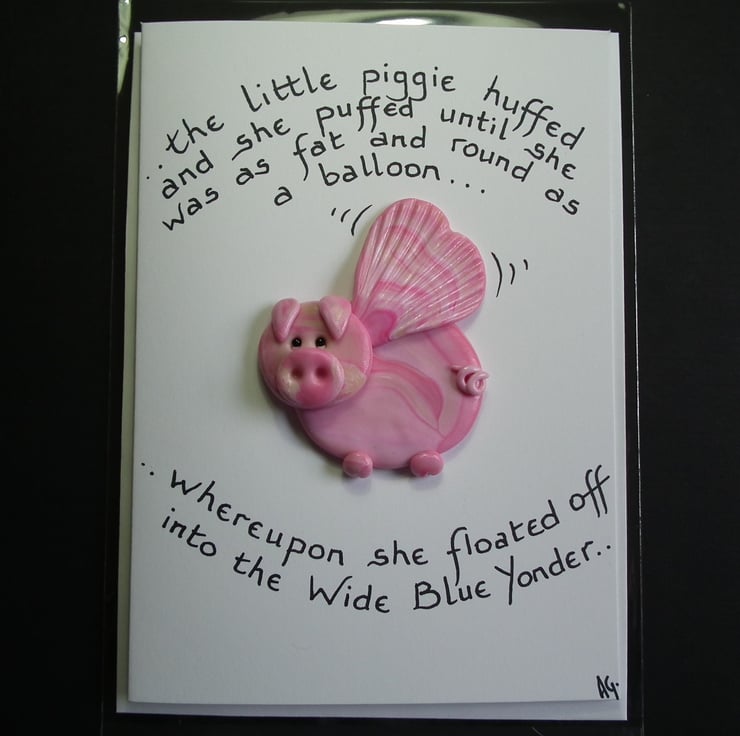 ..the little piggie huffed
and she puffed until she
was as fat and round as
a balloon...
..whereupon she floated off
into the Wide Blue Yonder..
AG.